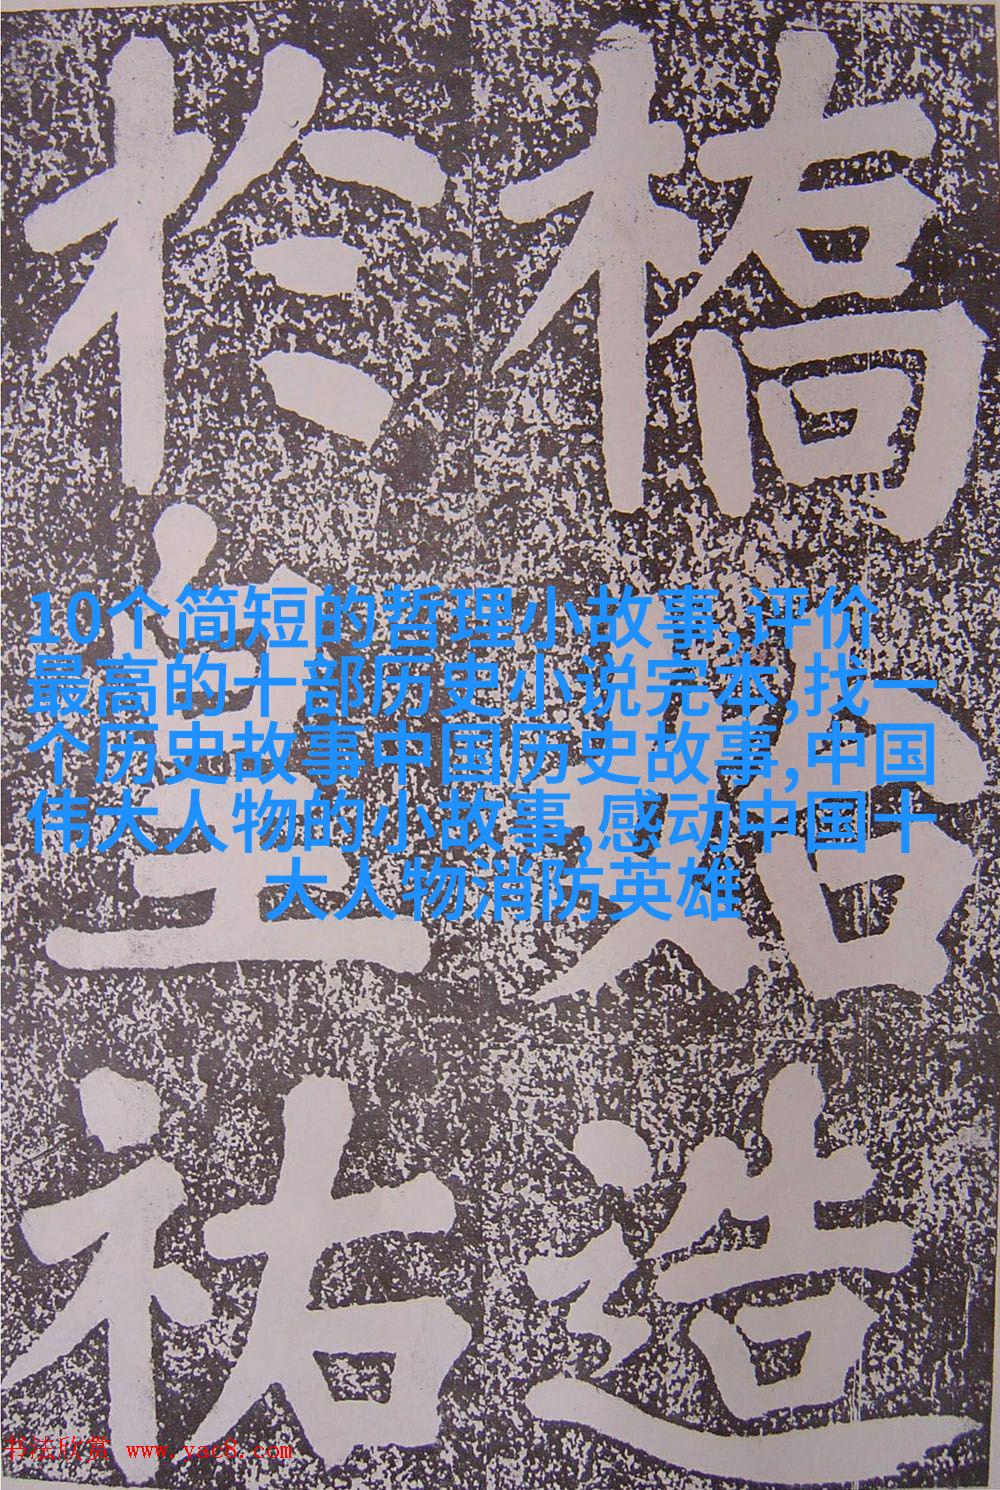 橋始造
扵皇祐
10个简短的哲理小故事,评价
最高的十部历史小说完本,找一
个历史故事中国历史故事,中国
伟大人物的小故事,感动中国十
大人物消防英雄
书法欣赏 www.yac8.com